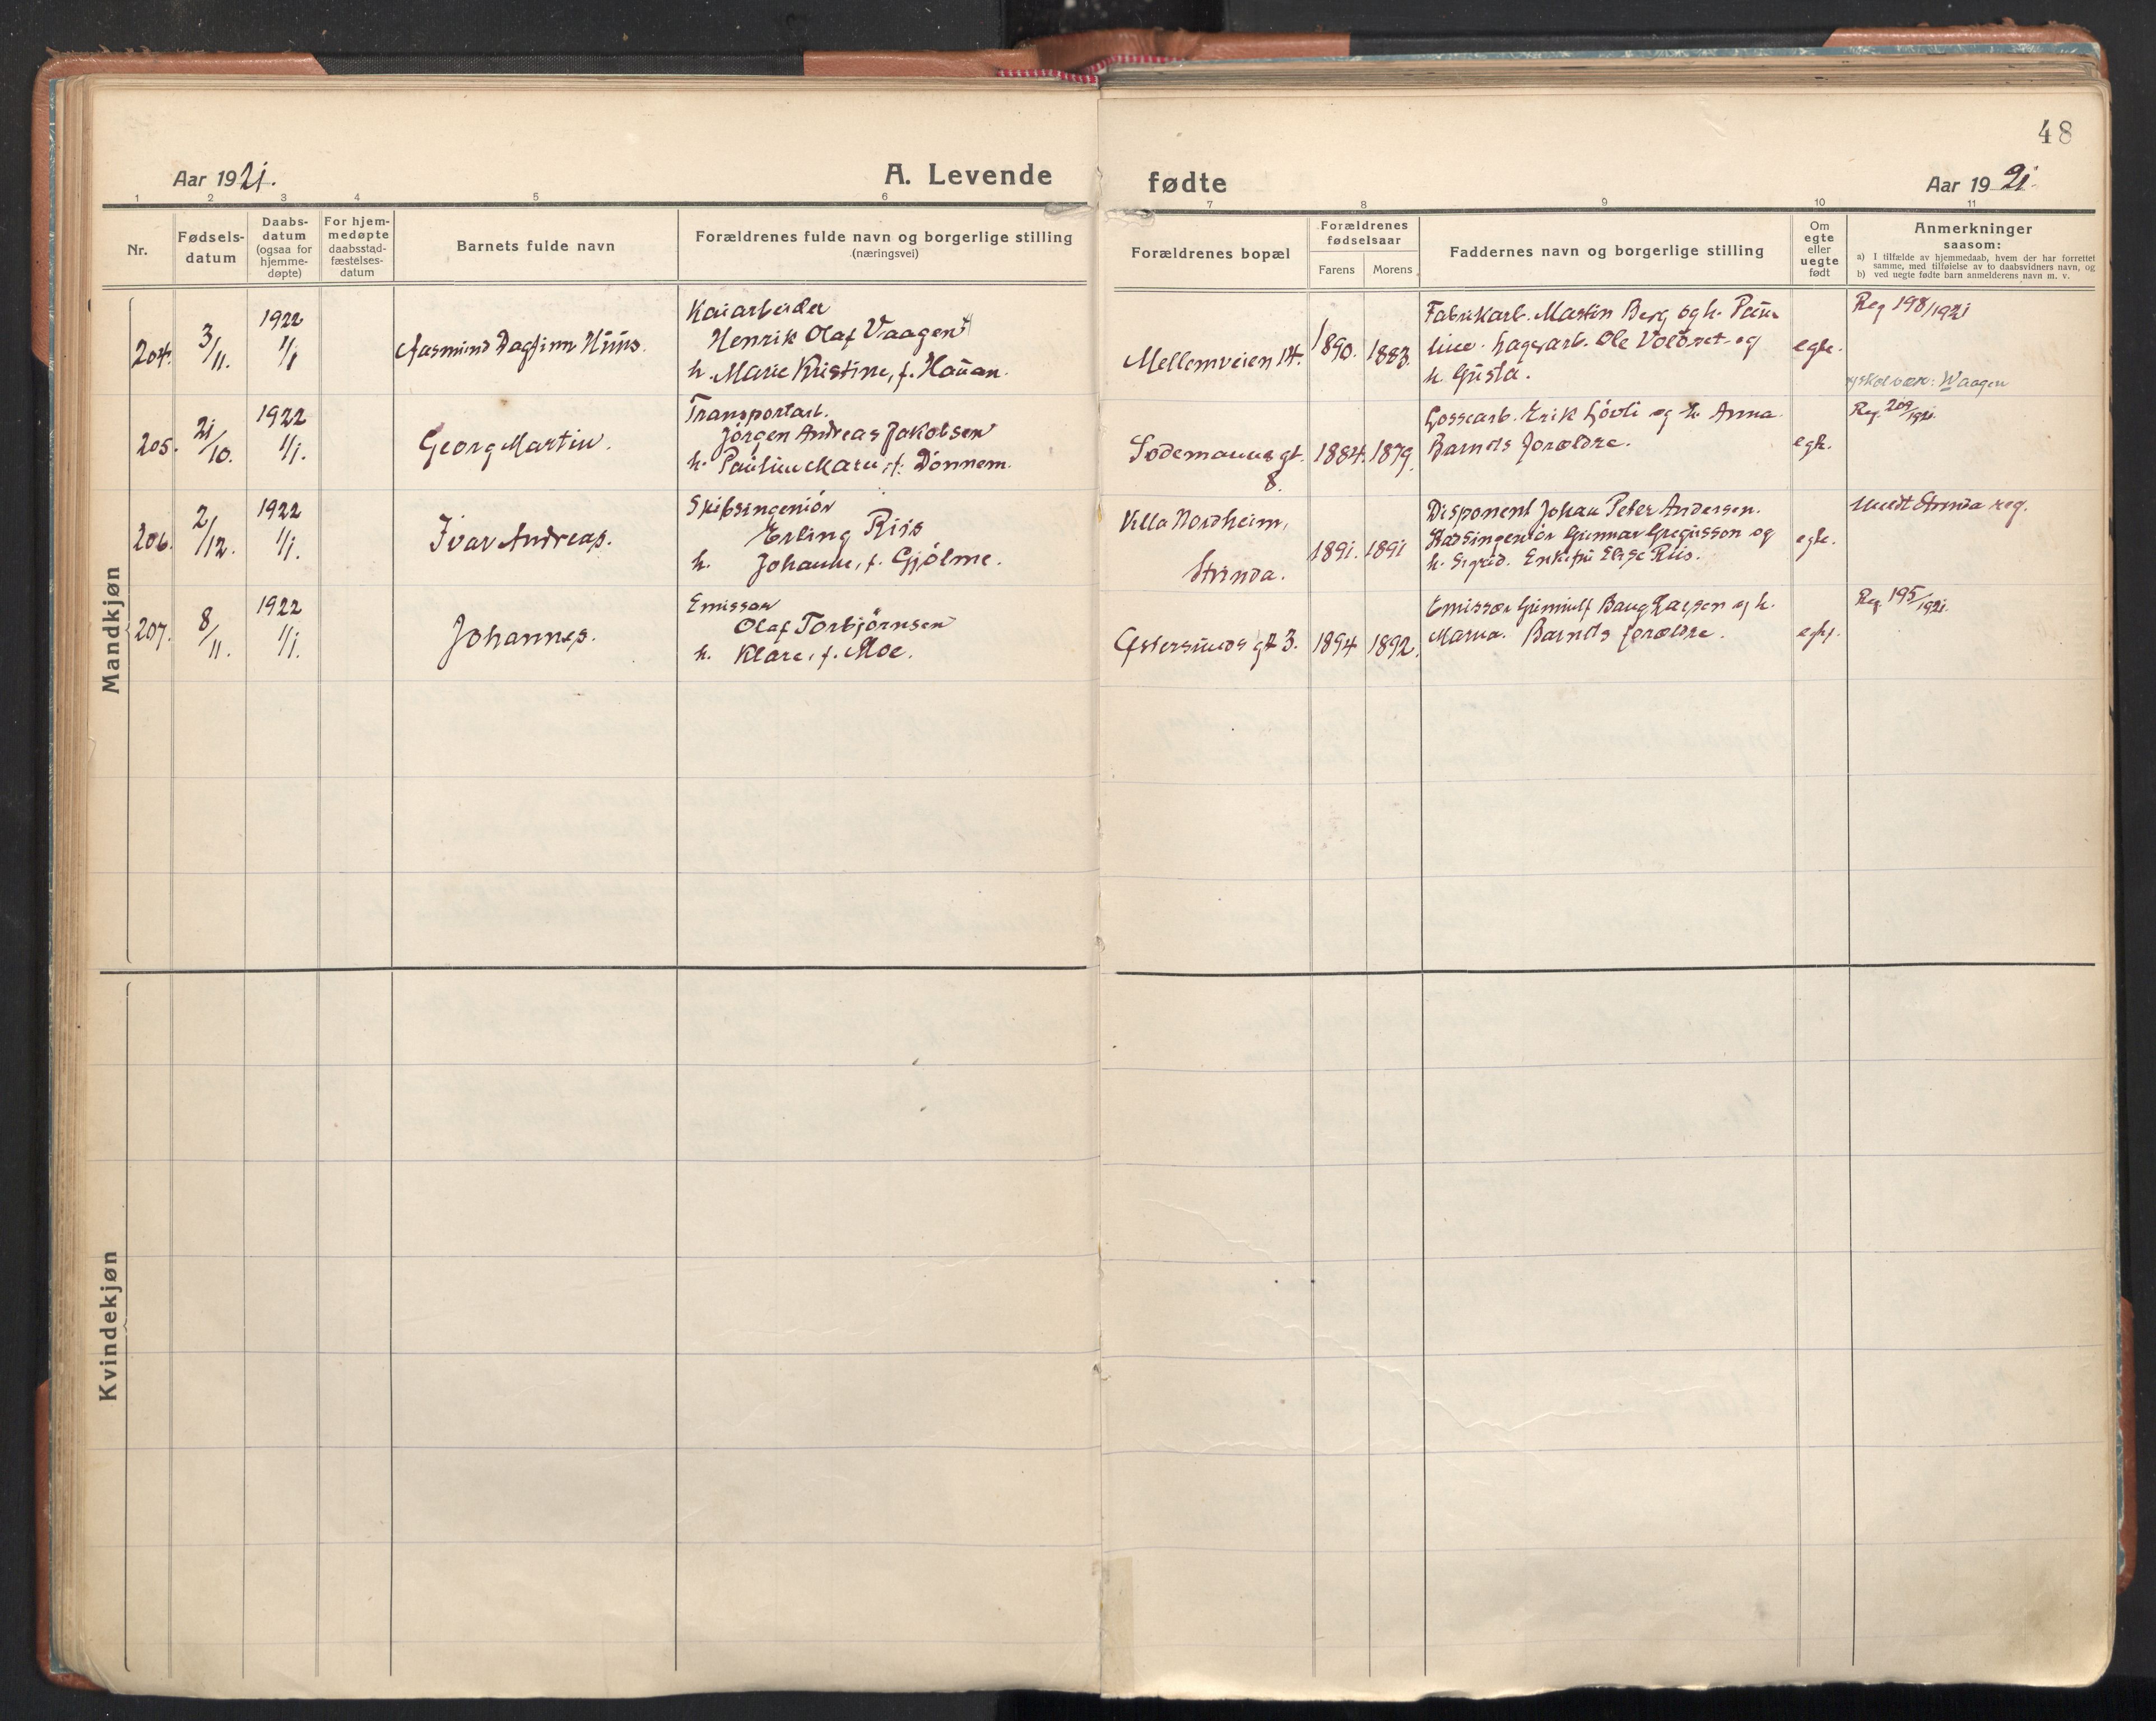 48
Aar 1921.
A. Levende fødte
Aar 1921.
1 2 3 4 5 6 7 8 9 10 11
Nr.
Fødsels-
datum
Daabs-
datum
(ogsaa for
hjemme-
døpte)
For hjem-
medøpte
daabsstad-
fæstelses-
datum
Barnets fulde navn
Forældrenes fulde navn og borgerlige stilling
(næringsvei)
Forældrenes bopæl
Forældrenes
fødselsaar
Farens Morens
Faddernes navn og borgerlige stilling
Om
egte
eller
uegte
født
Anmerkninger
saasom:
a) I tilfælde av hjemmedaab, hvem der har forrettet
samme, med tilføielse av to daabsvidners navn, og
b) ved uegte fødte barn anmelderens navn m. v.
Mandkjøn
204.
3/11.
1922
1/1
Aasmund Dagfinn
Kaiarbeider
Henrik Olaf Vaagen
h. Marie Kristine, f. Hauan.
Mellemveien 14.
1890. 1883.
Fabrikarb. Martin Berg og h. Pau-
line. Lagerarb. Ole Voldset og
h. Gusta.
egte.
Reg 198/1921
skal være: Waagen
205.
21/10.
1922
1/1.
Georg Martin.
Transportarb.
Jörgen Andreas Jakobsen
h. Pauline Maria, f. Dönnem.
Sodemanns gt.
8.
1884. 1879.
Erik og h. Anna.
Barnets forældre.
egte.
Reg. 209/1921.
206.
2/12.
1922
1/1.
Ivar Andreas.
Skibsingeniör
Erling Riis
h. Johanne, f. Gjölme.
Villa Nordheim,
Strinda.
1891. 1891
Disponent Johan Peter Andersen.
Gunnar Gregusson og
h. Sigrid. Enkefru Elise Riis.
egte.
Meldt Strinda reg.
207.
8/11.
1922
1/1.
Johannes.
Emissær
Olaf Torbjörnsen
h. Klara, f. Moe.
Østersunds gt 3.
1894 1892.
Emissær Larsen og h.
Marna. Barnets forældre.
egte.
Reg. 195/1921.
Kvindekjøn